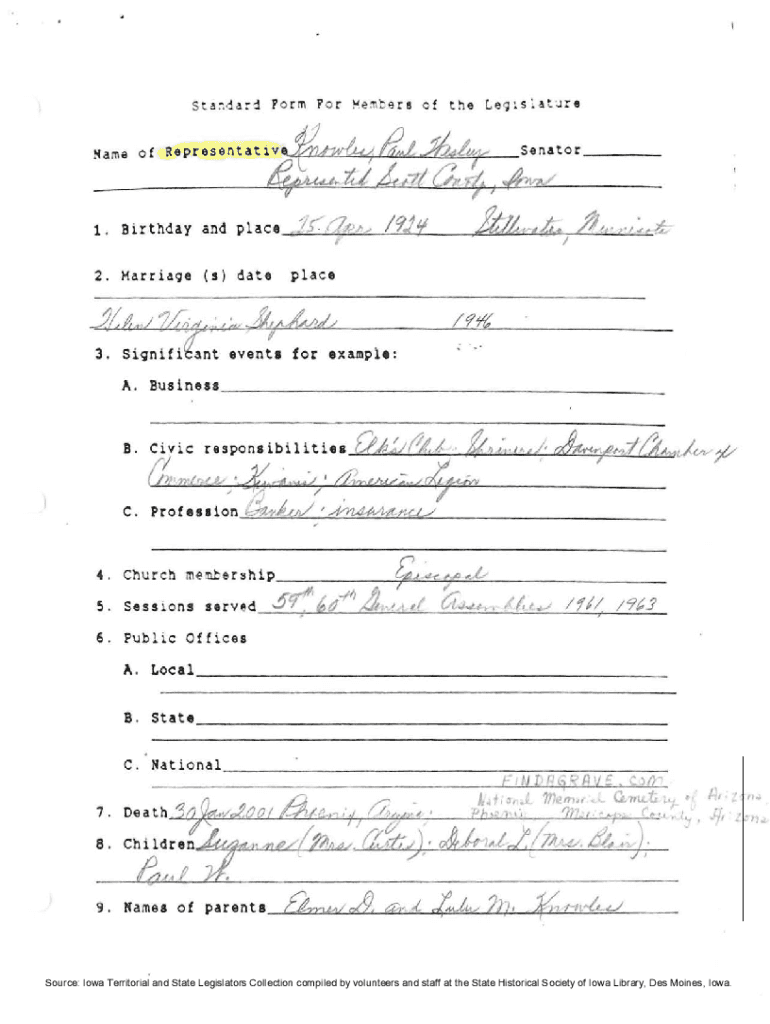 Standard Form For Members of the Legislature
Name of Representative Knowles, Paul Wesley Senator
Represented Scott County, Iowa
1. Birthday and place 25 Apr 1924 Stillwater, Minnesota
2. Marriage (s) date place
Helen Virginia Shephard 1946
3. Significant events for example:
A. Business
B. Civic responsibilities Elk's Club; Shriners; Davenport Chamber of
Commerce; Kiwanis; American Legion
C. Profession Banker; insurance
4. Church membership Episcopal
5. Sessions served 59th, 60th General Assemblies 1961, 1963
6. Public Offices
A. Local
B. State
C. National
FINDAGRAVE.COM
National Memorial Cemetery of Arizona,
7. Death 30 Jan 2001 Phoenix, Arizona; Phoenix, Maricopa County, Arizona
8. Children Suzanne (Mrs. Curtis); Deborah L. (Mrs. Blair);
Paul W.
9. Names of parents Elmer D. and Lulu M. Knowles
Source: Iowa Territorial and State Legislators Collection compiled by volunteers and staff at the State Historical Society of Iowa Library, Des Moines, Iowa.